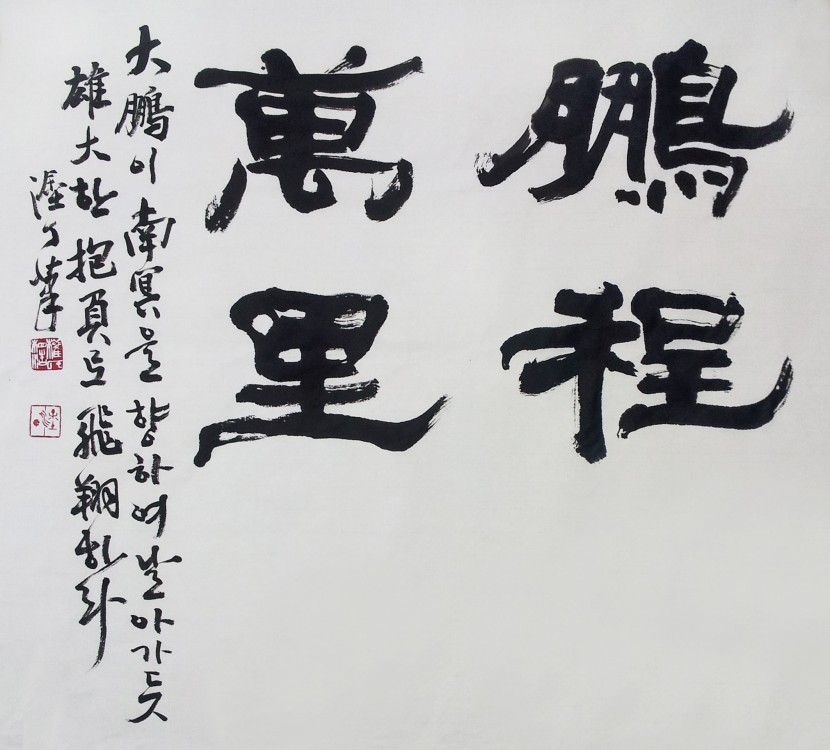 鵬程
萬里
大鵬이 南冥을 향하여 날아가듯
雄大한 抱負로 飛翔하라